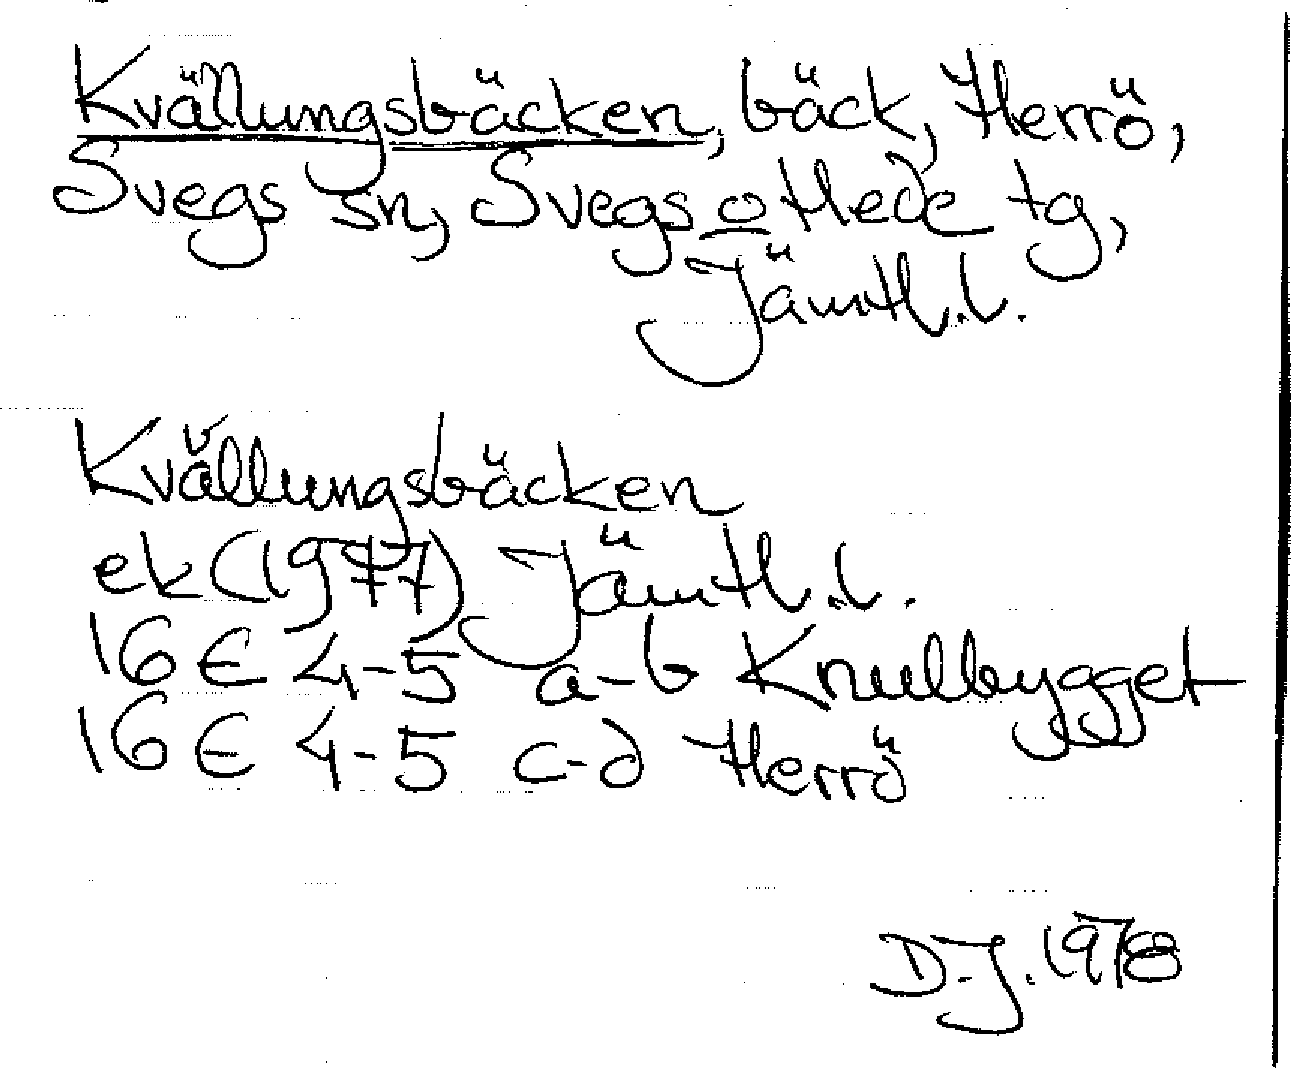 Kvällungsbäcken, bäck, Herrö,
Svegs sn, Svegs o Hede tg,
Jämtl.l.
Kvällungsbäcken
ek (1977) Jämtl.l.
16 E 4-5 a-b Knullbygget
16 E 4-5 c-d Herrö
D-J. 1978